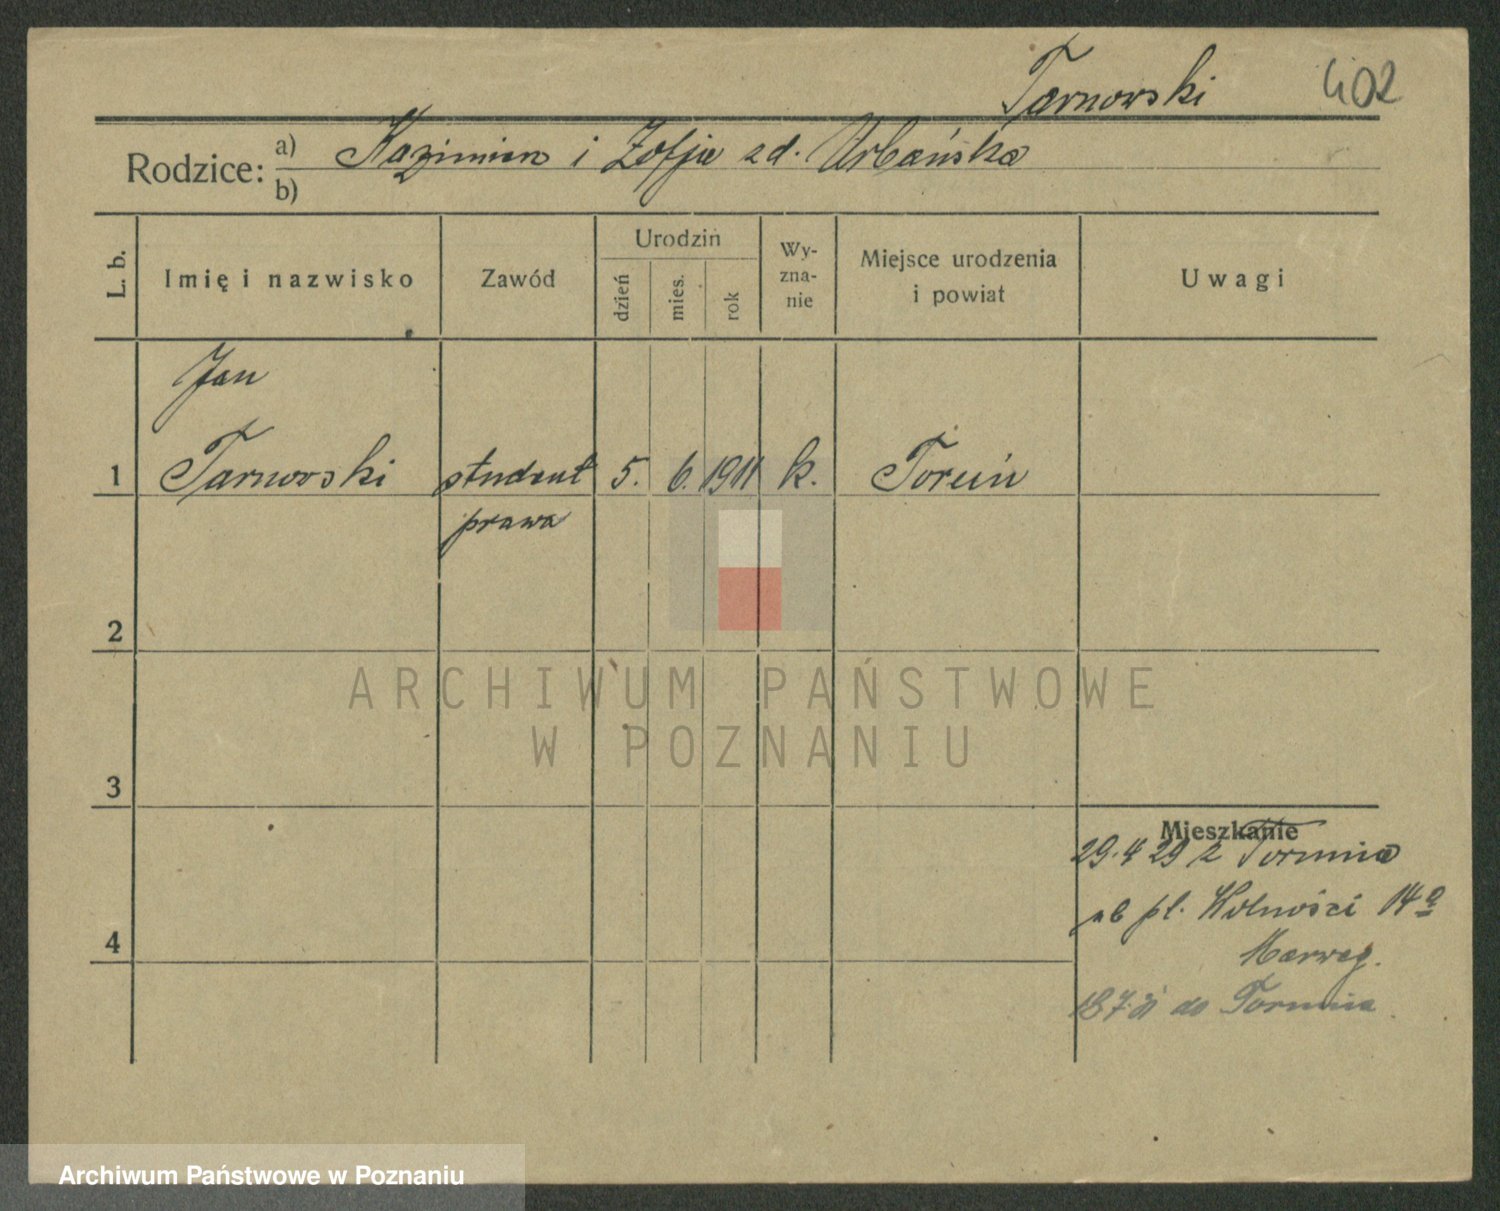 Tarnowski
402
Rodzice: a) Kazimierz i Zofja zd. Urbańska
b)
L. b.
Imię i nazwisko
Zawód
Urodzin
dzień
mies.
rok
Wy-
zna-
nie
Miejsce urodzenia
i powiat
Uwagi
Jan
1 Tarnowski student 5. 6. 1911 k. Toruń
prawa
2
3
4
Mieszkanie
29.4 29 z Torunia
pl. Wolności 14a
do Torunia
ARCHIWUM PAŃSTWOWE
W POZNANIU
Archiwum Państwowe w Poznaniu